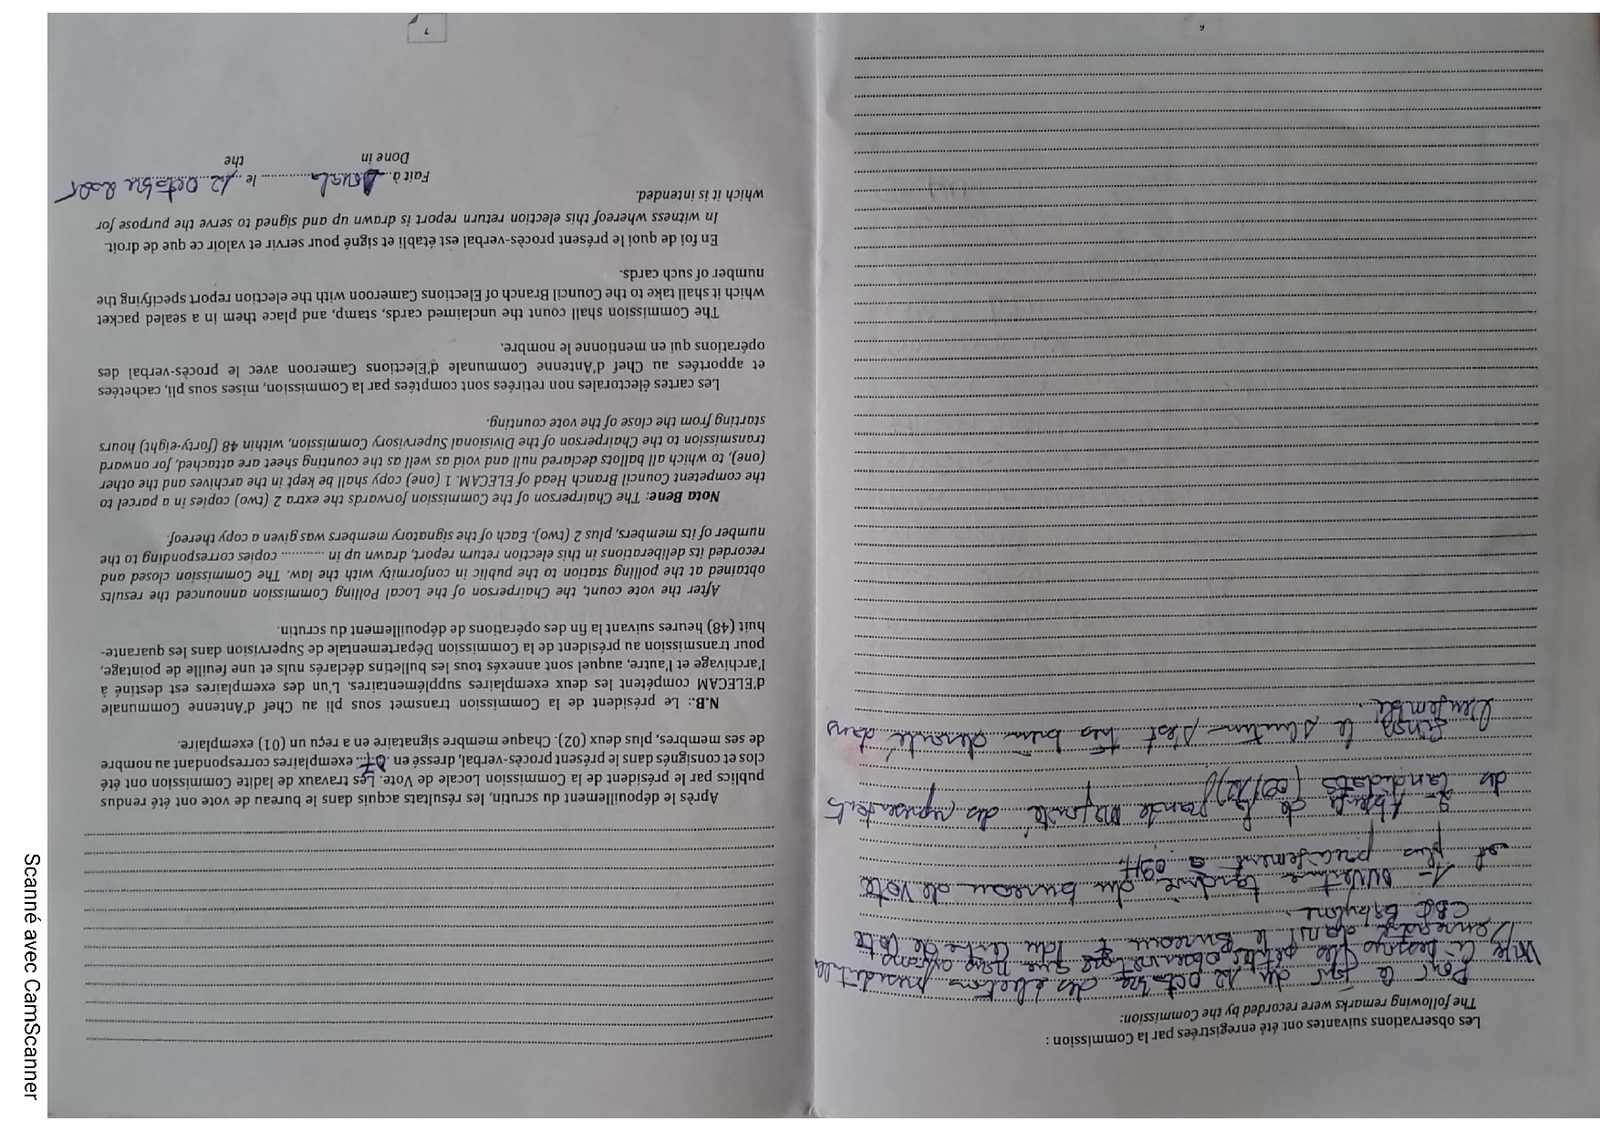 Les observations suivantes ont été enregistrées par la Commission :
The following remarks were recorded by the Commission:
Pour le jour du 12 octobre des élections présidentielle
Voici ci-dessous les petites observations que nous avons
enregistré dans le Bureau F du Centre de Vote
CBC Babylone.
1- Ouverture tardive du bureau de vote
et plus précisement à 09H.
2- Absence de la grande majorité des représentants
de candidats (09/12)
Enfin le scrutin s'est très bien déroulé dans
l'ensemble.
6
Après le dépouillement du scrutin, les résultats acquis dans le bureau de vote ont été rendus
publics par le président de la Commission Locale de Vote. Les travaux de ladite Commission ont été
clos et consignés dans le présent procès-verbal, dressé en 07 exemplaires correspondant au nombre
de ses membres, plus deux (02). Chaque membre signataire en a reçu un (01) exemplaire.
N.B.: Le président de la Commission transmet sous pli au Chef d'Antenne Communale
d'ELECAM compétent les deux exemplaires supplémentaires. L'un des exemplaires est destiné à
l'archivage et l'autre, auquel sont annexés tous les bulletins déclarés nuls et une feuille de pointage,
pour transmission au président de la Commission Départementale de Supervision dans les quarante-
huit (48) heures suivant la fin des opérations de dépouillement du scrutin.
After the vote count, the Chairperson of the Local Polling Commission announced the results
obtained at the polling station to the public in conformity with the law. The Commission closed and
recorded its deliberations in this election return report, drawn up in ........... copies corresponding to the
number of its members, plus 2 (two). Each of the signatory members was given a copy thereof.
Nota Bene: The Chairperson of the Commission forwards the extra 2 (two) copies in a parcel to
the competent Council Branch Head of ELECAM. 1 (one) copy shall be kept in the archives and the other
(one), to which all ballots declared null and void as well as the counting sheet are attached, for onward
transmission to the Chairperson of the Divisional Supervisory Commission, within 48 (forty-eight) hours
starting from the close of the vote counting.
Les cartes électorales non retirées sont comptées par la Commission, mises sous pli, cachetées
et apportées au Chef d'Antenne Communale d'Elections Cameroon avec le procès-verbal des
opérations qui en mentionne le nombre.
The Commission shall count the unclaimed cards, stamp, and place them in a sealed packet
which it shall take to the Council Branch of Elections Cameroon with the election report specifying the
number of such cards.
En foi de quoi le présent procès-verbal est établi et signé pour servir et valoir ce que de droit.
In witness whereof this election return report is drawn up and signed to serve the purpose for
which it is intended.
Fait à Douala le 12 octobre 2025
Done in the
7
Scanné avec CamScanner